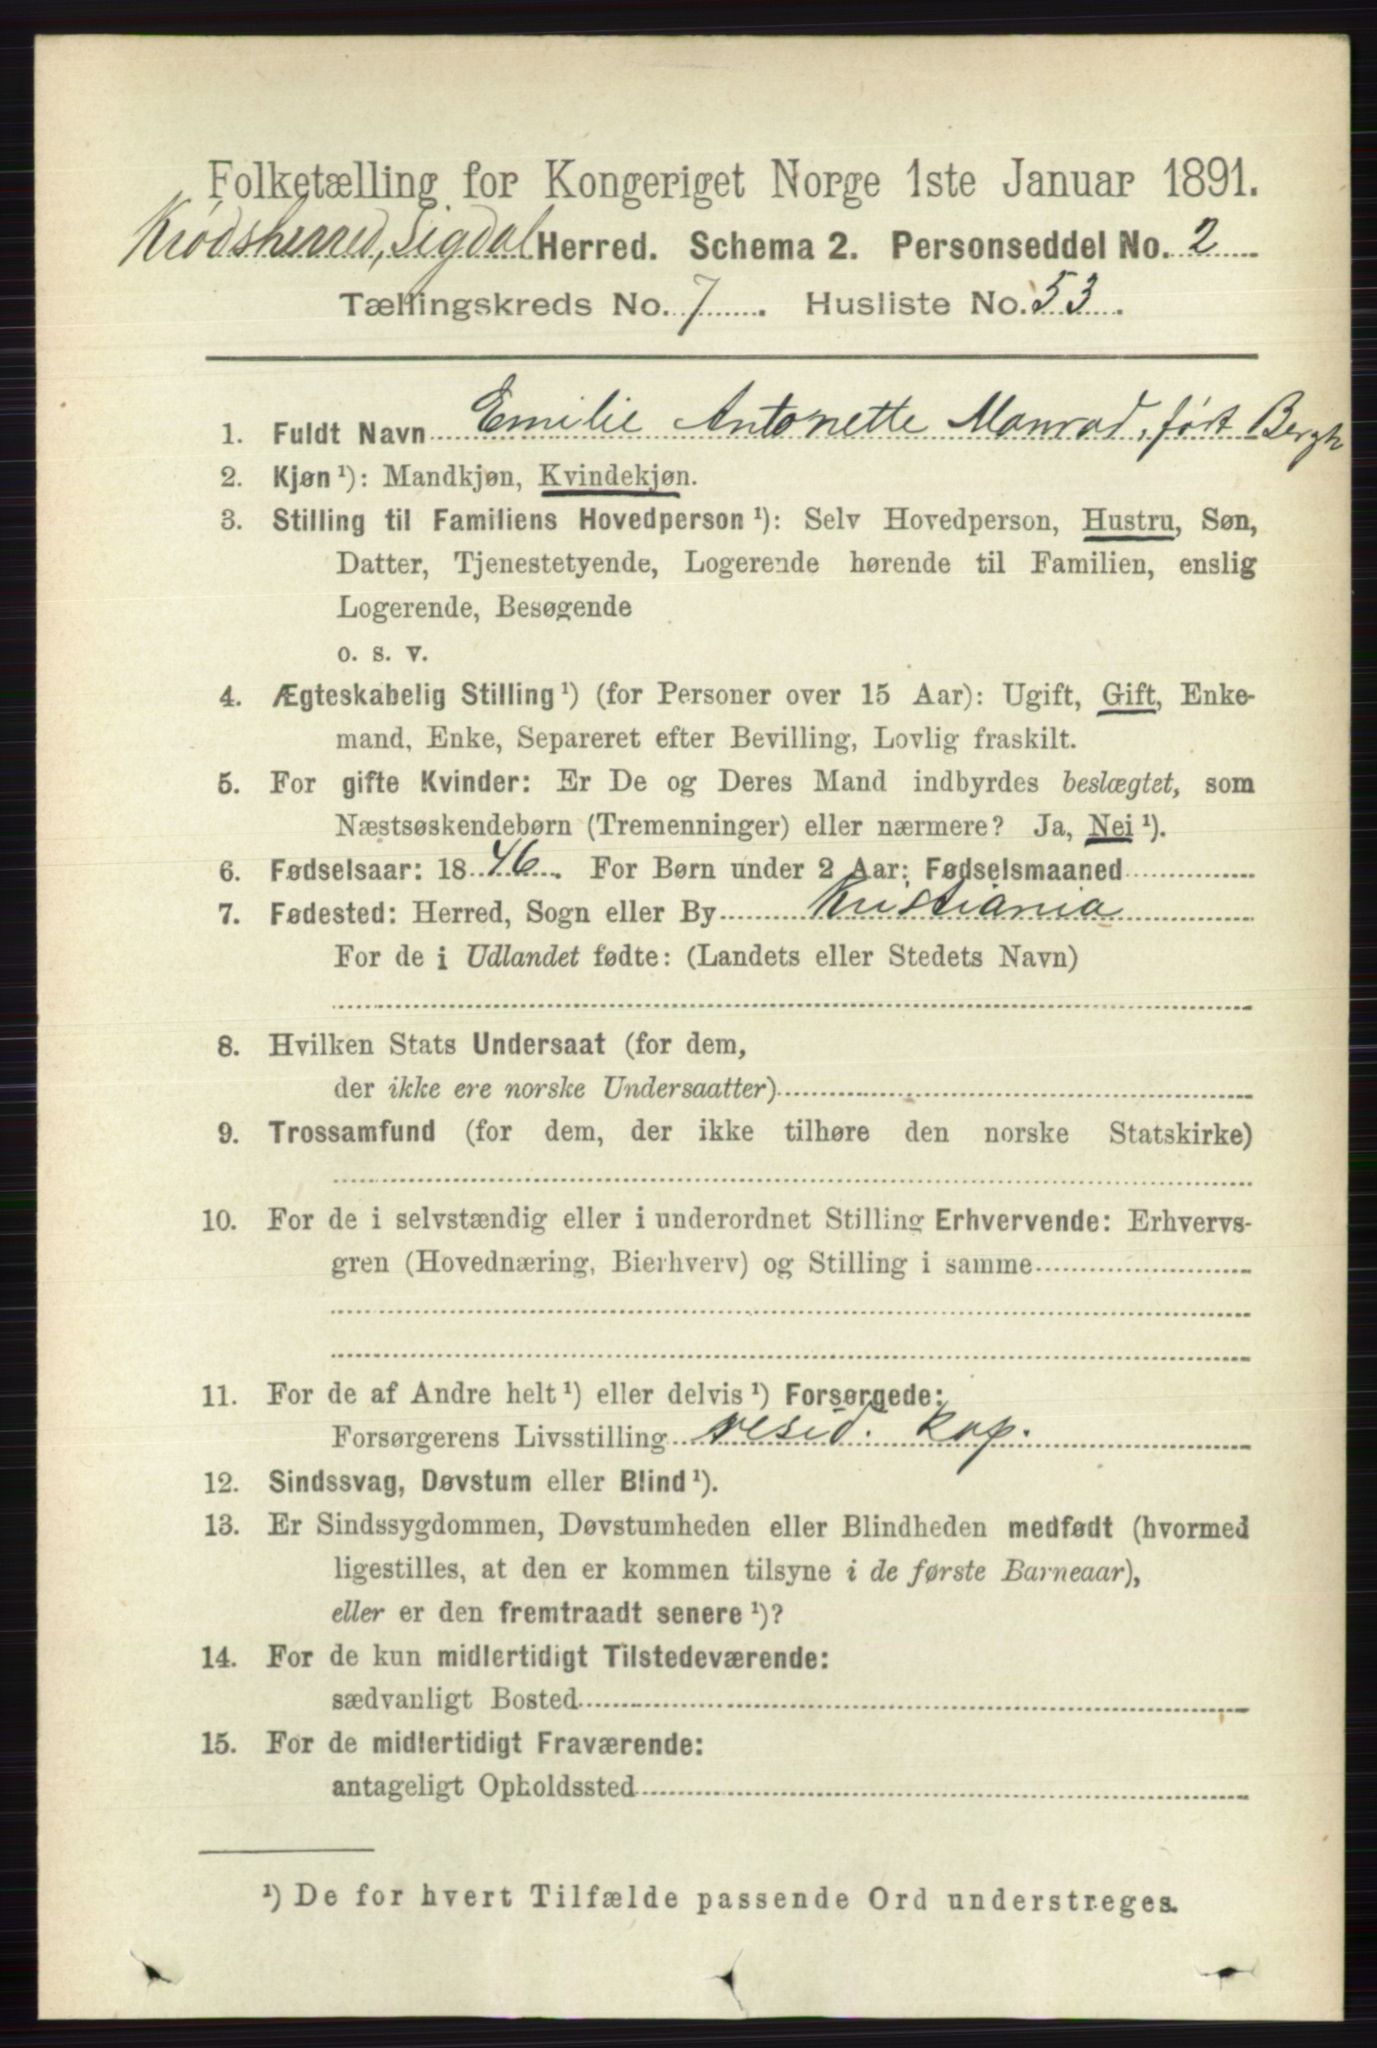 Folketælling for Kongeriget Norge 1ste Januar 1891.
Krødsherred, Sigdal Herred. Schema 2. Personseddel No. 2
Tællingskreds No. 7. Husliste No. 53.
1. Fuldt Navn Emilie Antonette Monrad, født Bergh
2. Kjøn ¹): Mandkjøn, Kvindekjøn.
3. Stilling til Familiens Hovedperson ¹): Selv Hovedperson, Hustru, Søn,
Datter, Tjenestetyende, Logerende hørende til Familien, enslig
Logerende, Besøgende
o. s. v.
4. Ægteskabelig Stilling ¹) (for Personer over 15 Aar): Ugift, Gift, Enke-
mand, Enke, Separeret efter Bevilling, Lovlig fraskilt.
5. For gifte Kvinder: Er De og Deres Mand indbyrdes beslægtet, som
Næstsøskendebørn (Tremenninger) eller nærmere? Ja, Nei ¹).
6. Fødselsaar: 1846. For Børn under 2 Aar: Fødselsmaaned
7. Fødested: Herred, Sogn eller By Kristiania
For de i Udlandet fødte: (Landets eller Stedets Navn)
8. Hvilken Stats Undersaat (for dem,
der ikke ere norske Undersaatter)
9. Trossamfund (for dem, der ikke tilhøre den norske Statskirke)
10. For de i selvstændig eller i underordnet Stilling Erhvervende: Erhvervs-
gren (Hovednæring, Bierhverv) og Stilling i samme
11. For de af Andre helt ¹) eller delvis ¹) Forsørgede:
Forsørgerens Livsstilling resid. kap.
12. Sindssvag, Døvstum eller Blind ¹).
13. Er Sindssygdommen, Døvstumheden eller Blindheden medfødt (hvormed
ligestilles, at den er kommen tilsyne i de første Barneaar),
eller er den fremtraadt senere ¹)?
14. For de kun midlertidigt Tilstedeværende:
sædvanligt Bosted
15. For de midlertidigt Fraværende:
antageligt Opholdssted
¹) De for hvert Tilfælde passende Ord understreges.